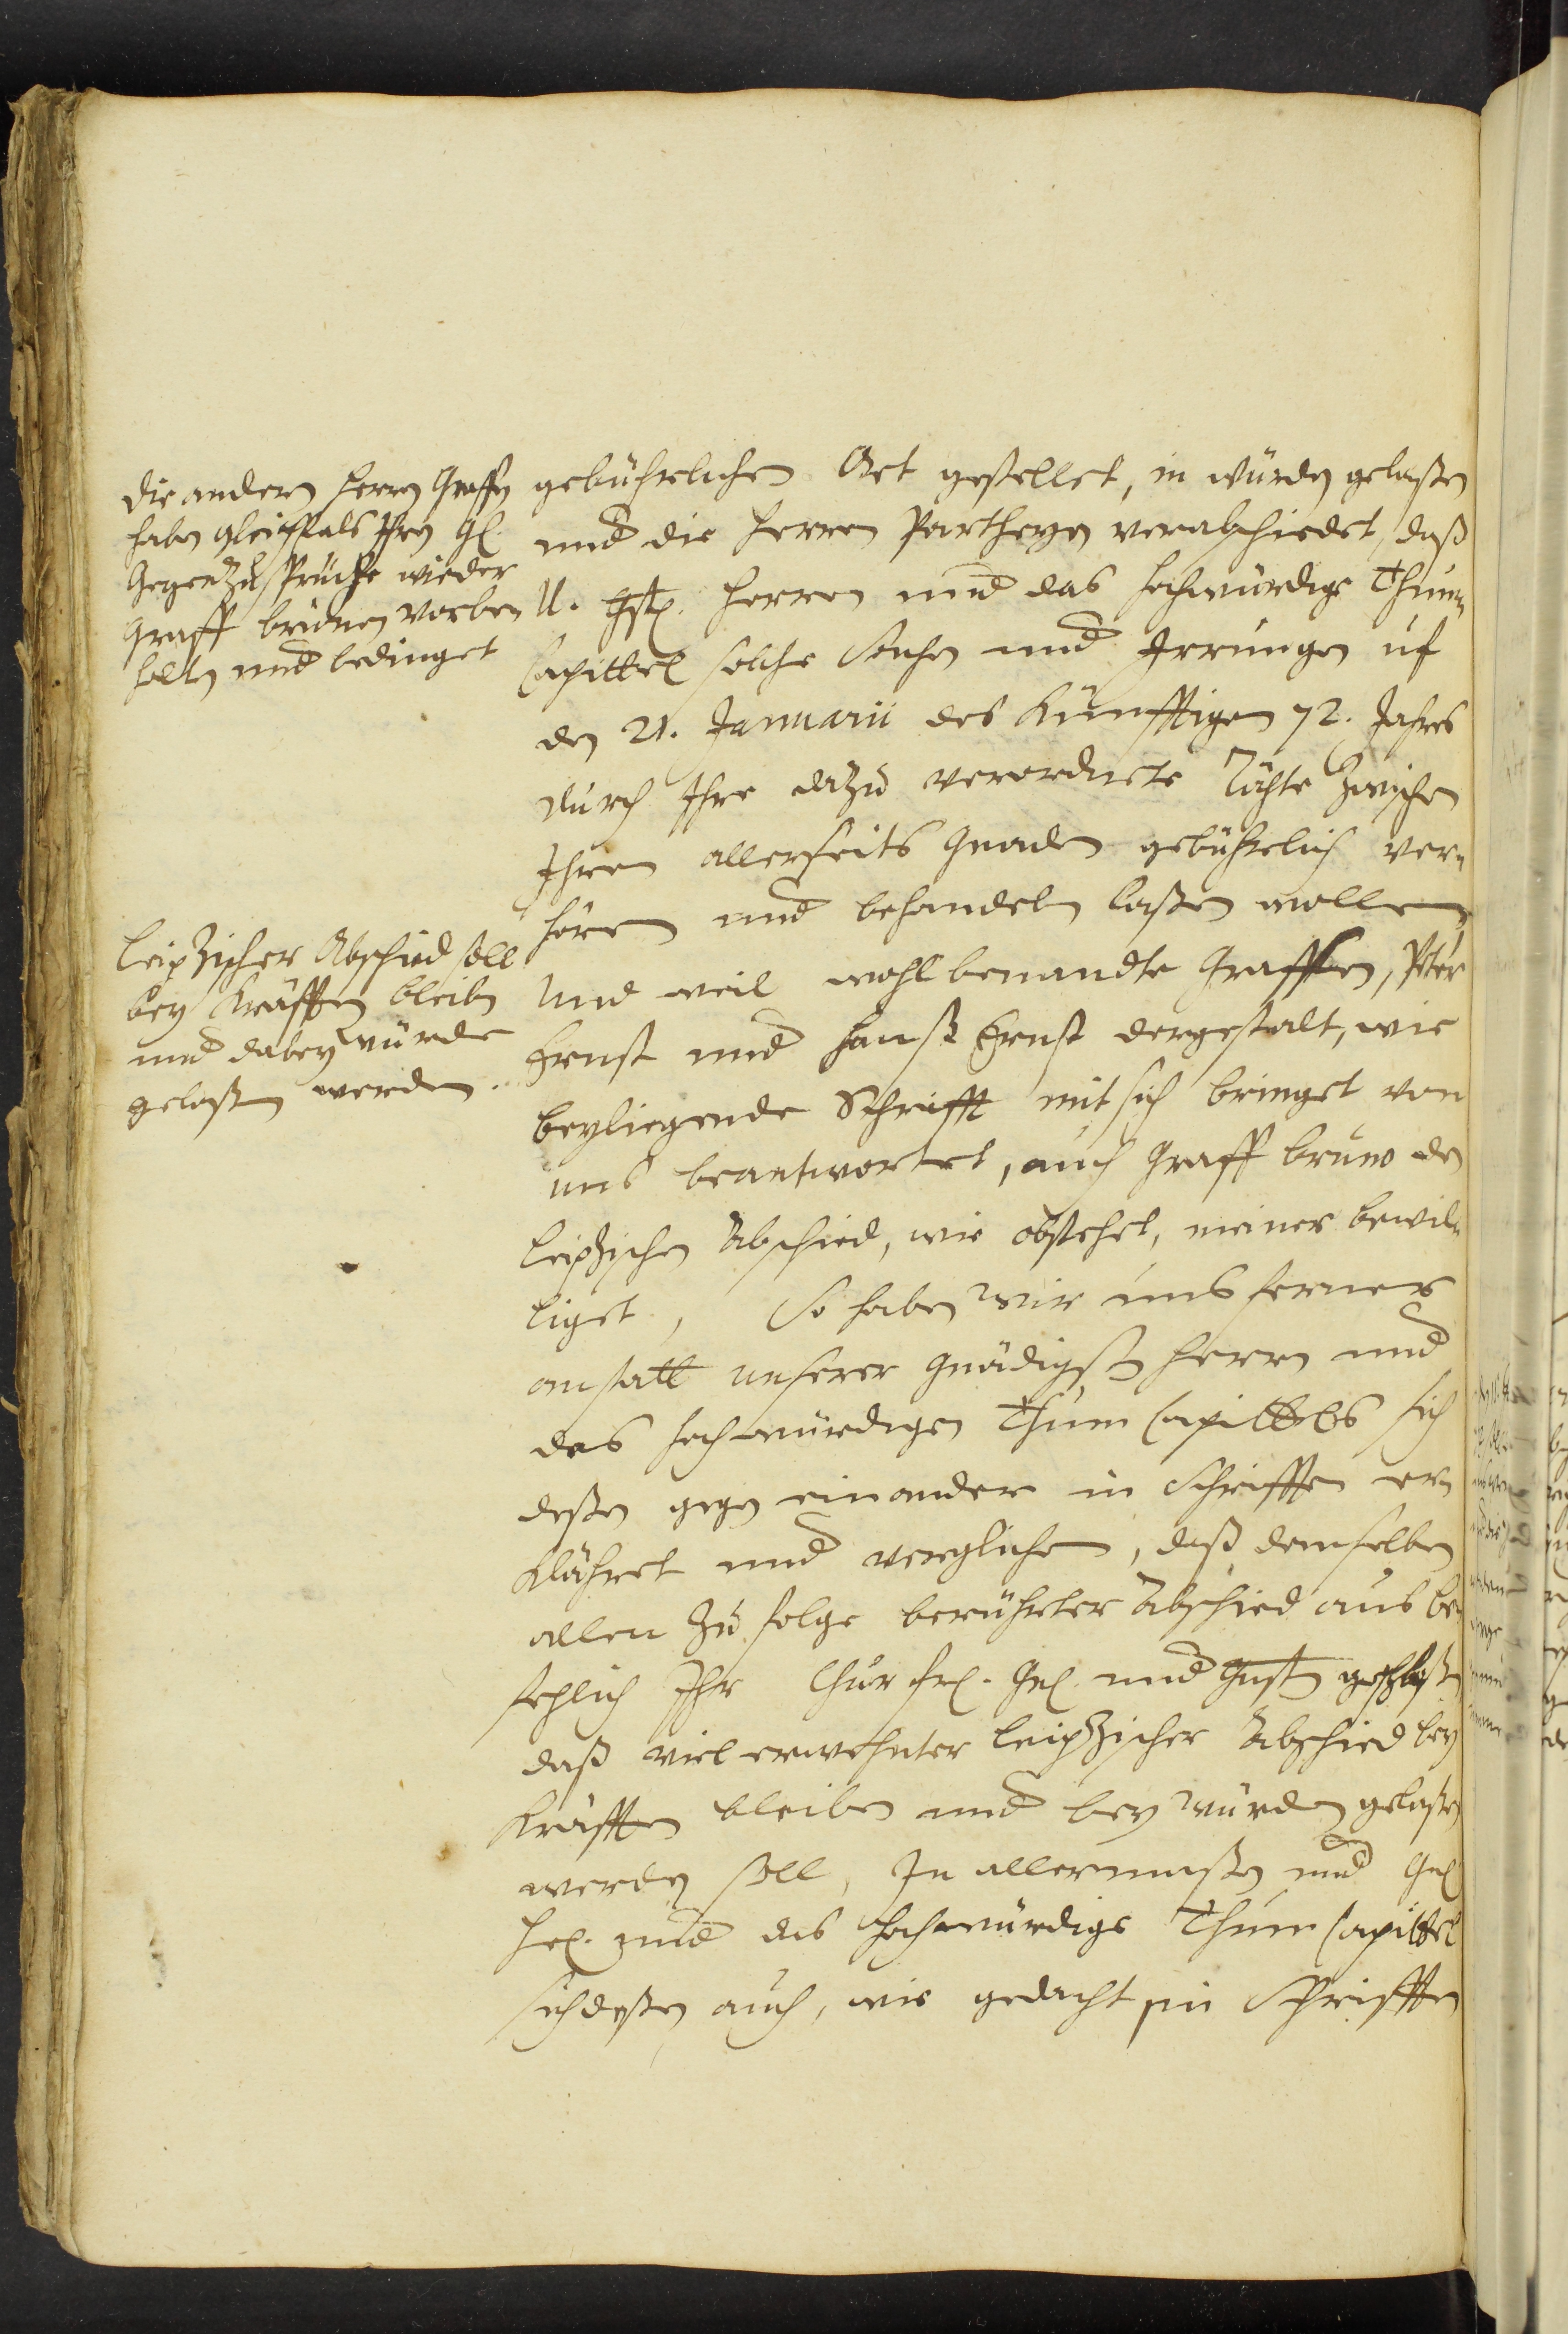 die andern Herrn Graffen
haben gleichfals Ihre
Gegenzusprüche wieder
Graff Brunen vorbe-
halten und bedinget
Leipzischer Abschied soll
bey Kräfften bleiben
und dabey würde
gelaßen werden.
gebührlichen Ort gestellet, in würden gelaßen
und die Herren Partheyen verabschiedet, daß
U. gst. Herren und das Hochwürdige Thum-
Capittel solche Sachen und Irrungen uf
den 21. Januarii des Künfftigen 72. Jahres
durch Ihre dazu verordnete Räthe zwischen
Ihren allerseits Gnaden gebührlich ver-
hören und behandeln laßen wollen
Und weil wohlbenandte Graffen, Peter
Ernst und Hanß Ernst dergestalt, wie
beyliegende Schrifft mit sich bringet von
uns beantwortet, auch Graff Bruno den
Leipzischen Abschied, wie obstehet, meiner bewil-
liget, So haben wir uns ferner
anstatt unserer Gnädigsten Herrn und
des Hochwürdigen Thum Capittels sich
deßen gegen einander in Schrifften er-
klähret und verglichen, daß demselben
allen zu folge berührter Abschied aus be-
fehlich Ihr Churfl. Gn. und Gnst geschloßen
daß viel erwehnter Leipzischer Abschied bey
Kräfften bleiben und bey würden gelaßen
werden soll, In allermaßen und
und das Hochwürdige Thum Capittel
sich deßen auch, wie gedacht, in Schrifften